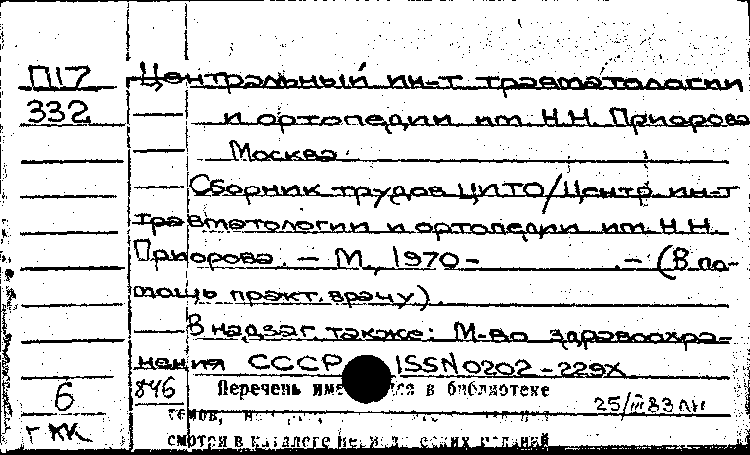 П17 Центральный ин-т травматологии
332 и ортопедии им. Н.Н. Приорова
Москва.
Сборник трудов ЦИТО/Центр. ин-т
травматологии и ортопедии им. Н.Н.
Приорова. – М., 1970 - . – (В по-
мощь практ. врачу).
В надзаг. также: М-во здравоохра-
нения СССР ISSN 0202-229X
6 846 Перечень в библиотеке
25/III 83
г КК
смотри в каталоге изданий